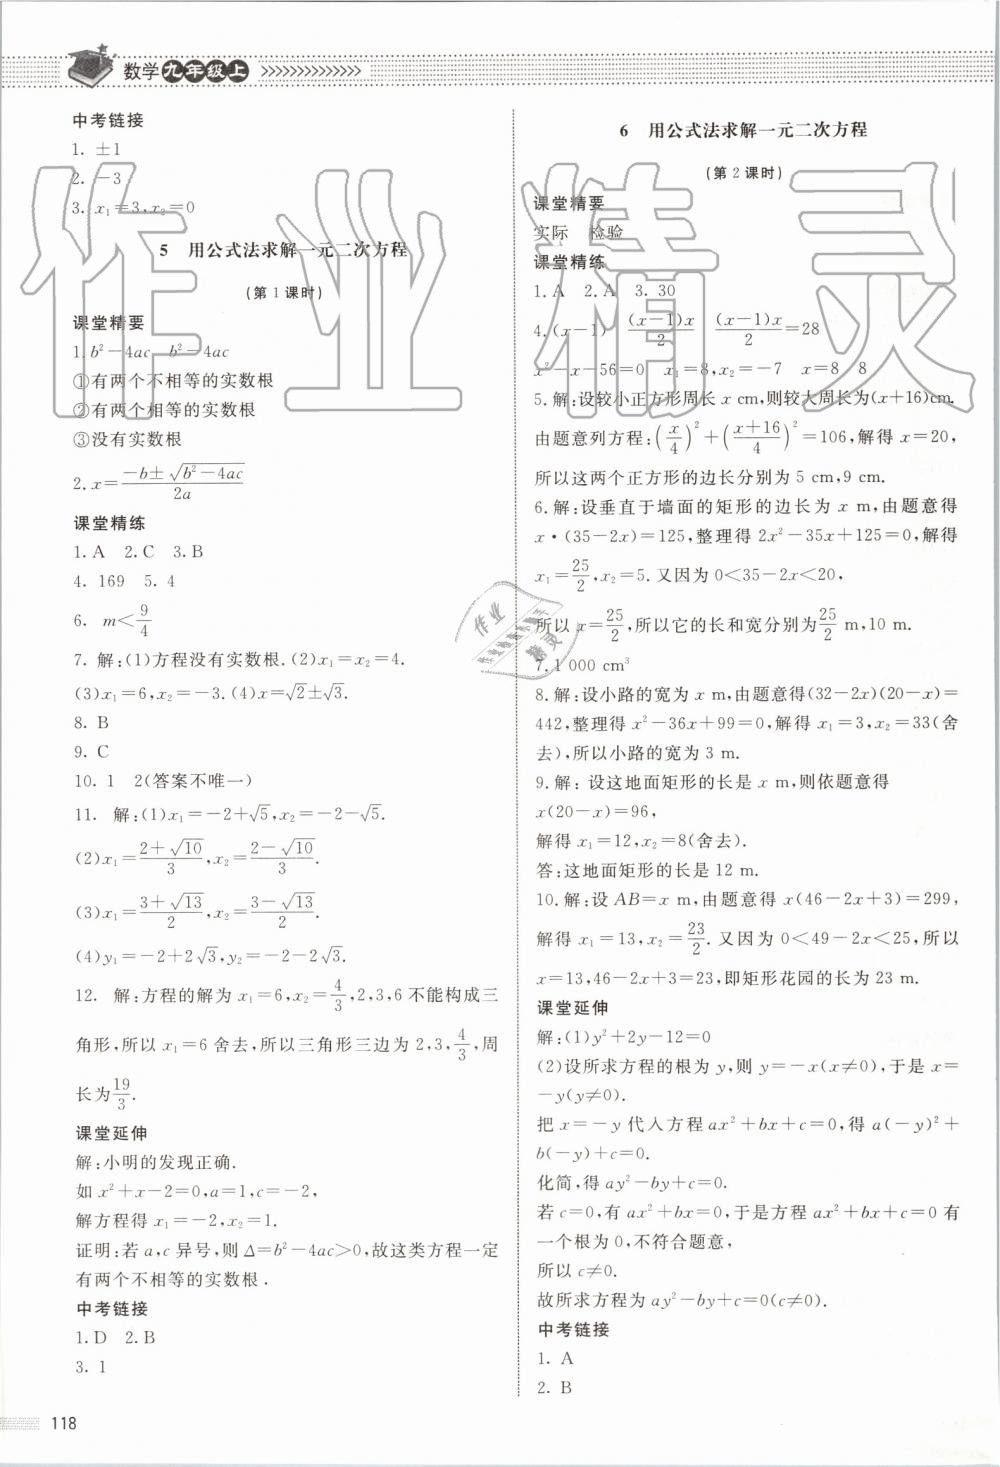 数学九年级上
中考链接
1. ±1
2. -3
3. x₁=3,x₂=0
5 用公式法求解一元二次方程
(第1课时)
课堂精要
1. b²-4ac b²-4ac
①有两个不相等的实数根
②有两个相等的实数根
③没有实数根
2. x=(-b±√(b²-4ac))/2a
课堂精练
1. A 2. C 3. B
4. 169 5. 4
6. m<9/4
7. 解:(1)方程没有实数根.(2)x₁=x₂=4.
(3)x₁=6,x₂=-3.(4)x=√2±√3.
8. B
9. C
10. 1 2(答案不唯一)
11. 解:(1)x₁=-2+√5,x₂=-2-√5.
(2)x₁=(2+√10)/3,x₂=(2-√10)/3.
(3)x₁=(3+√13)/2,x₂=(3-√13)/2.
(4)y₁=-2+2√3,y₂=-2-2√3.
12. 解:方程的解为x₁=6,x₂=4/3,2,3,6不能构成三
角形,所以x₁=6舍去,所以三角形三边为2,3,4/3,周
长为19/3.
课堂延伸
解:小明的发现正确.
如x²+x-2=0,a=1,c=-2,
解方程得x₁=-2,x₂=1.
证明:若a,c异号,则Δ=b²-4ac>0,故这类方程一定
有两个不相等的实数根.
中考链接
1. D 2. B
3. 1
118
6 用公式法求解一元二次方程
(第2课时)
课堂精要
实际 检验
课堂精练
1. A 2. A 3. 30
4. (x-1) (x-1)x/2 (x-1)x/2=28
x²-x-56=0 x₁=8,x₂=-7 x=8 8
5. 解:设较小正方形周长x cm,则较大周长为(x+16)cm.
由题意列方程:(x/4)²+((x+16)/4)²=106,解得x=20,
所以这两个正方形的边长分别为5 cm,9 cm.
6. 解:设垂直于墙面的矩形的边长为x m,由题意得
x·(35-2x)=125,整理得2x²-35x+125=0,解得
x₁=25/2,x₂=5.又因为0<35-2x<20,
所以x=25/2,所以它的长和宽分别为25/2 m,10 m.
7. 1 000 cm³
8. 解:设小路的宽为x m,由题意得(32-2x)(20-x)=
442,整理得x²-36x+99=0,解得x₁=3,x₂=33(舍
去),所以小路的宽为3 m.
9. 解: 设这地面矩形的长是x m,则依题意得
x(20-x)=96,
解得x₁=12,x₂=8(舍去).
答:这地面矩形的长是12 m.
10. 解:设AB=x m,由题意得x(46-2x+3)=299,
解得x₁=13,x₂=23/2.又因为0<49-2x<25,所以
x=13,46-2x+3=23,即矩形花园的长为23 m.
课堂延伸
解:(1)y²+2y-12=0
(2)设所求方程的根为y,则y=-x(x≠0),于是x=
-y(y≠0).
把x=-y代入方程ax²+bx+c=0,得a(-y)²+
b(-y)+c=0.
化简,得ay²-by+c=0.
若c=0,有ax²+bx=0,于是方程ax²+bx+c=0有
一个根为0,不符合题意,
所以c≠0.
故所求方程为ay²-by+c=0(c≠0).
中考链接
1. A
2. B
作业精灵